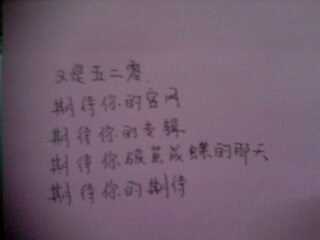 又是五二零.
期待你的官网
期待你的专辑
期待你破茧成蝶的那天
期待你的期待